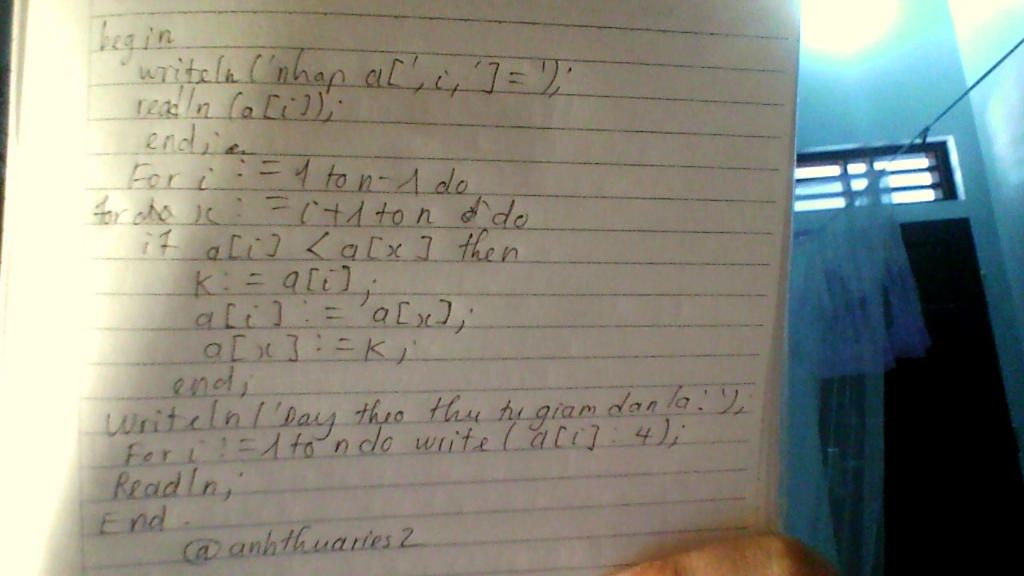 begin
writeln ('nhap a[', i, ']=');
readln (a[i]);
end;
For i := 1 to n-1 do
for x := i+1 to n do
if a[i] < a[x] then
K := a[i];
a[i] := a[x];
a[x] := K;
end;
Writeln ('Day theo thu tu giam dan la: ');
For i := 1 to n do write (a[i] : 4);
Readln;
End.
@anhthuaries2